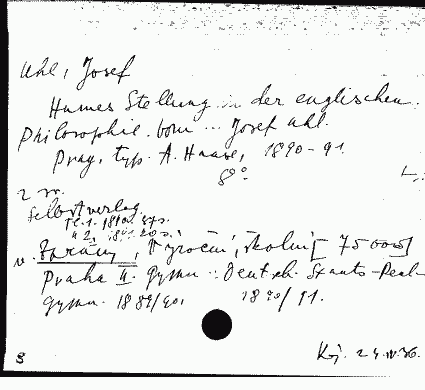 Uhl, Josef
Humes Stellung in der englischen
Philosophie. vom ... Josef Uhl.
Prag, typ. A. Haase, 1890-91.
8°
2 sv.
Selbstverlag
Č. 1. 1890. 37 s.
" 2. 1891. 20 s.
v Zprávy, výroční, školní [75 0005]
Praha II. Gymn.: Deutsch. Staats-Real-
gymn. 1889/90. 1890/91.
Kj. 24.IV.36.